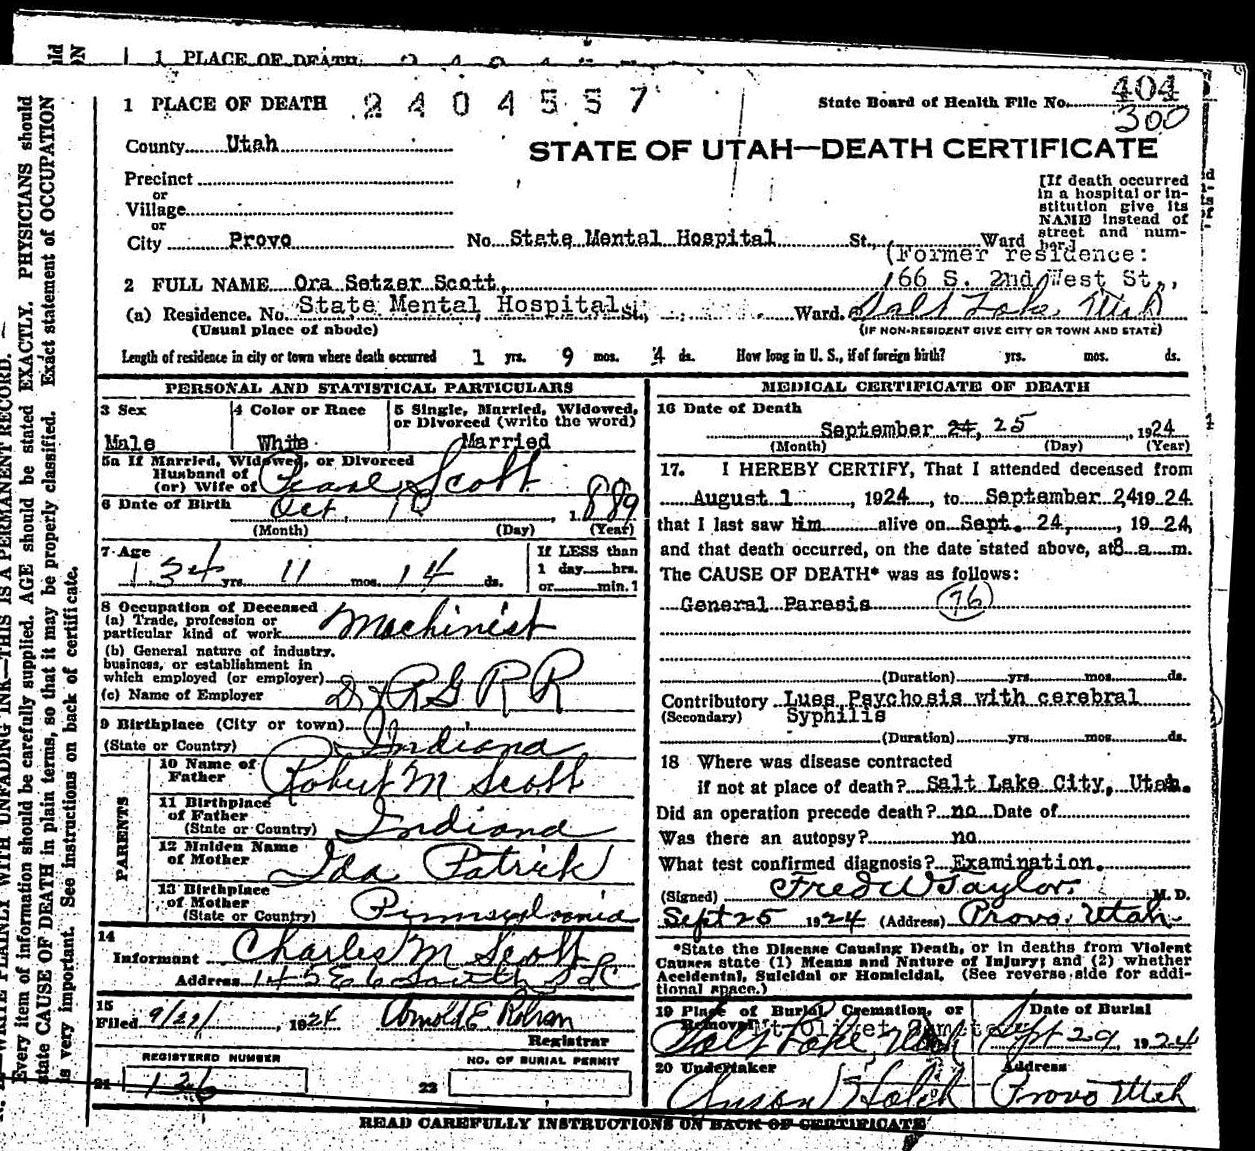 1 PLACE OF DEATH
1 PLACE OF DEATH 2404557
State Board of Health File No. 404
300
County Utah
STATE OF UTAH—DEATH CERTIFICATE
Precinct
or
Village
or
City Provo No. State Mental Hospital St., Ward
[If death occurred
in a hospital or in-
stitution give its
NAME instead of
street and num-
ber.]
(Former residence:
2 FULL NAME Ora Setzer Scott, 166 S. 2nd West St.,
(a) Residence. No. State Mental Hospital St., Ward. Salt Lake, Utah
(Usual place of abode) (IF NON-RESIDENT GIVE CITY OR TOWN AND STATE)
Length of residence in city or town where death occurred 1 yrs. 9 mos. 4 ds. How long in U. S., if of foreign birth? yrs. mos. ds.
PERSONAL AND STATISTICAL PARTICULARS
3 Sex
Male
4 Color or Race
White
5 Single, Married, Widowed,
or Divorced (write the word)
Married
5a If Married, Widowed, or Divorced
Husband of
(or) Wife of Pearl Scott
6 Date of Birth Oct. 10, 1889
(Month) (Day) (Year)
7 Age
34 yrs. 11 mos. 14 ds.
If LESS than
1 day hrs.
or min.
8 Occupation of Deceased
(a) Trade, profession or
particular kind of work Machinist
(b) General nature of industry,
business, or establishment in
which employed (or employer)
(c) Name of Employer D & RG R R
9 Birthplace (City or town)
(State or Country) Indiana
PARENTS
10 Name of
Father Robert M Scott
11 Birthplace
of Father
(State or Country) Indiana
12 Maiden Name
of Mother Ida Patrick
13 Birthplace
of Mother
(State or Country) Pennsylvania
14
Informant Charles M Scott
Address 145 E 6 South SLC
15
Filed 9/29/, 1924
Registrar
REGISTERED NUMBER NO. OF BURIAL PERMIT
21 126 22
MEDICAL CERTIFICATE OF DEATH
16 Date of Death
September 24, 25, 1924
(Month) (Day) (Year)
17. I HEREBY CERTIFY, That I attended deceased from
August 1, 1924, to September 24 1924
that I last saw him alive on Sept. 24, 1924,
and that death occurred, on the date stated above, at 8 a m.
The CAUSE OF DEATH* was as follows:
General Paresis (76)
(Duration) yrs. mos. ds.
Contributory Lues Psychosis with cerebral
(Secondary) Syphilis
(Duration) yrs. mos. ds.
18 Where was disease contracted
if not at place of death? Salt Lake City, Utah.
Did an operation precede death? no Date of
Was there an autopsy? no
What test confirmed diagnosis? Examination.
(Signed) Fred W Taylor. M. D.
Sept 25 1924 (Address) Provo, Utah
*State the Disease Causing Death, or in deaths from Violent
Causes state (1) Means and Nature of Injury; and (2) whether
Accidental, Suicidal or Homicidal. (See reverse side for addi-
tional space.)
19 Place of Burial, Cremation, or
Removal Mt Olivet Cemetery
Salt Lake, Utah
Date of Burial
Sept 29 1924
20 Undertaker
Anson Hatch
Address
Provo Utah
READ CAREFULLY INSTRUCTIONS ON BACK OF CERTIFICATE
WRITE PLAINLY WITH UNFADING INK—THIS IS A PERMANENT RECORD.
Every item of information should be carefully supplied. AGE should be stated EXACTLY. PHYSICIANS should
state CAUSE OF DEATH in plain terms, so that it may be properly classified. Exact statement of OCCUPATION
is very important. See instructions on back of certificate.